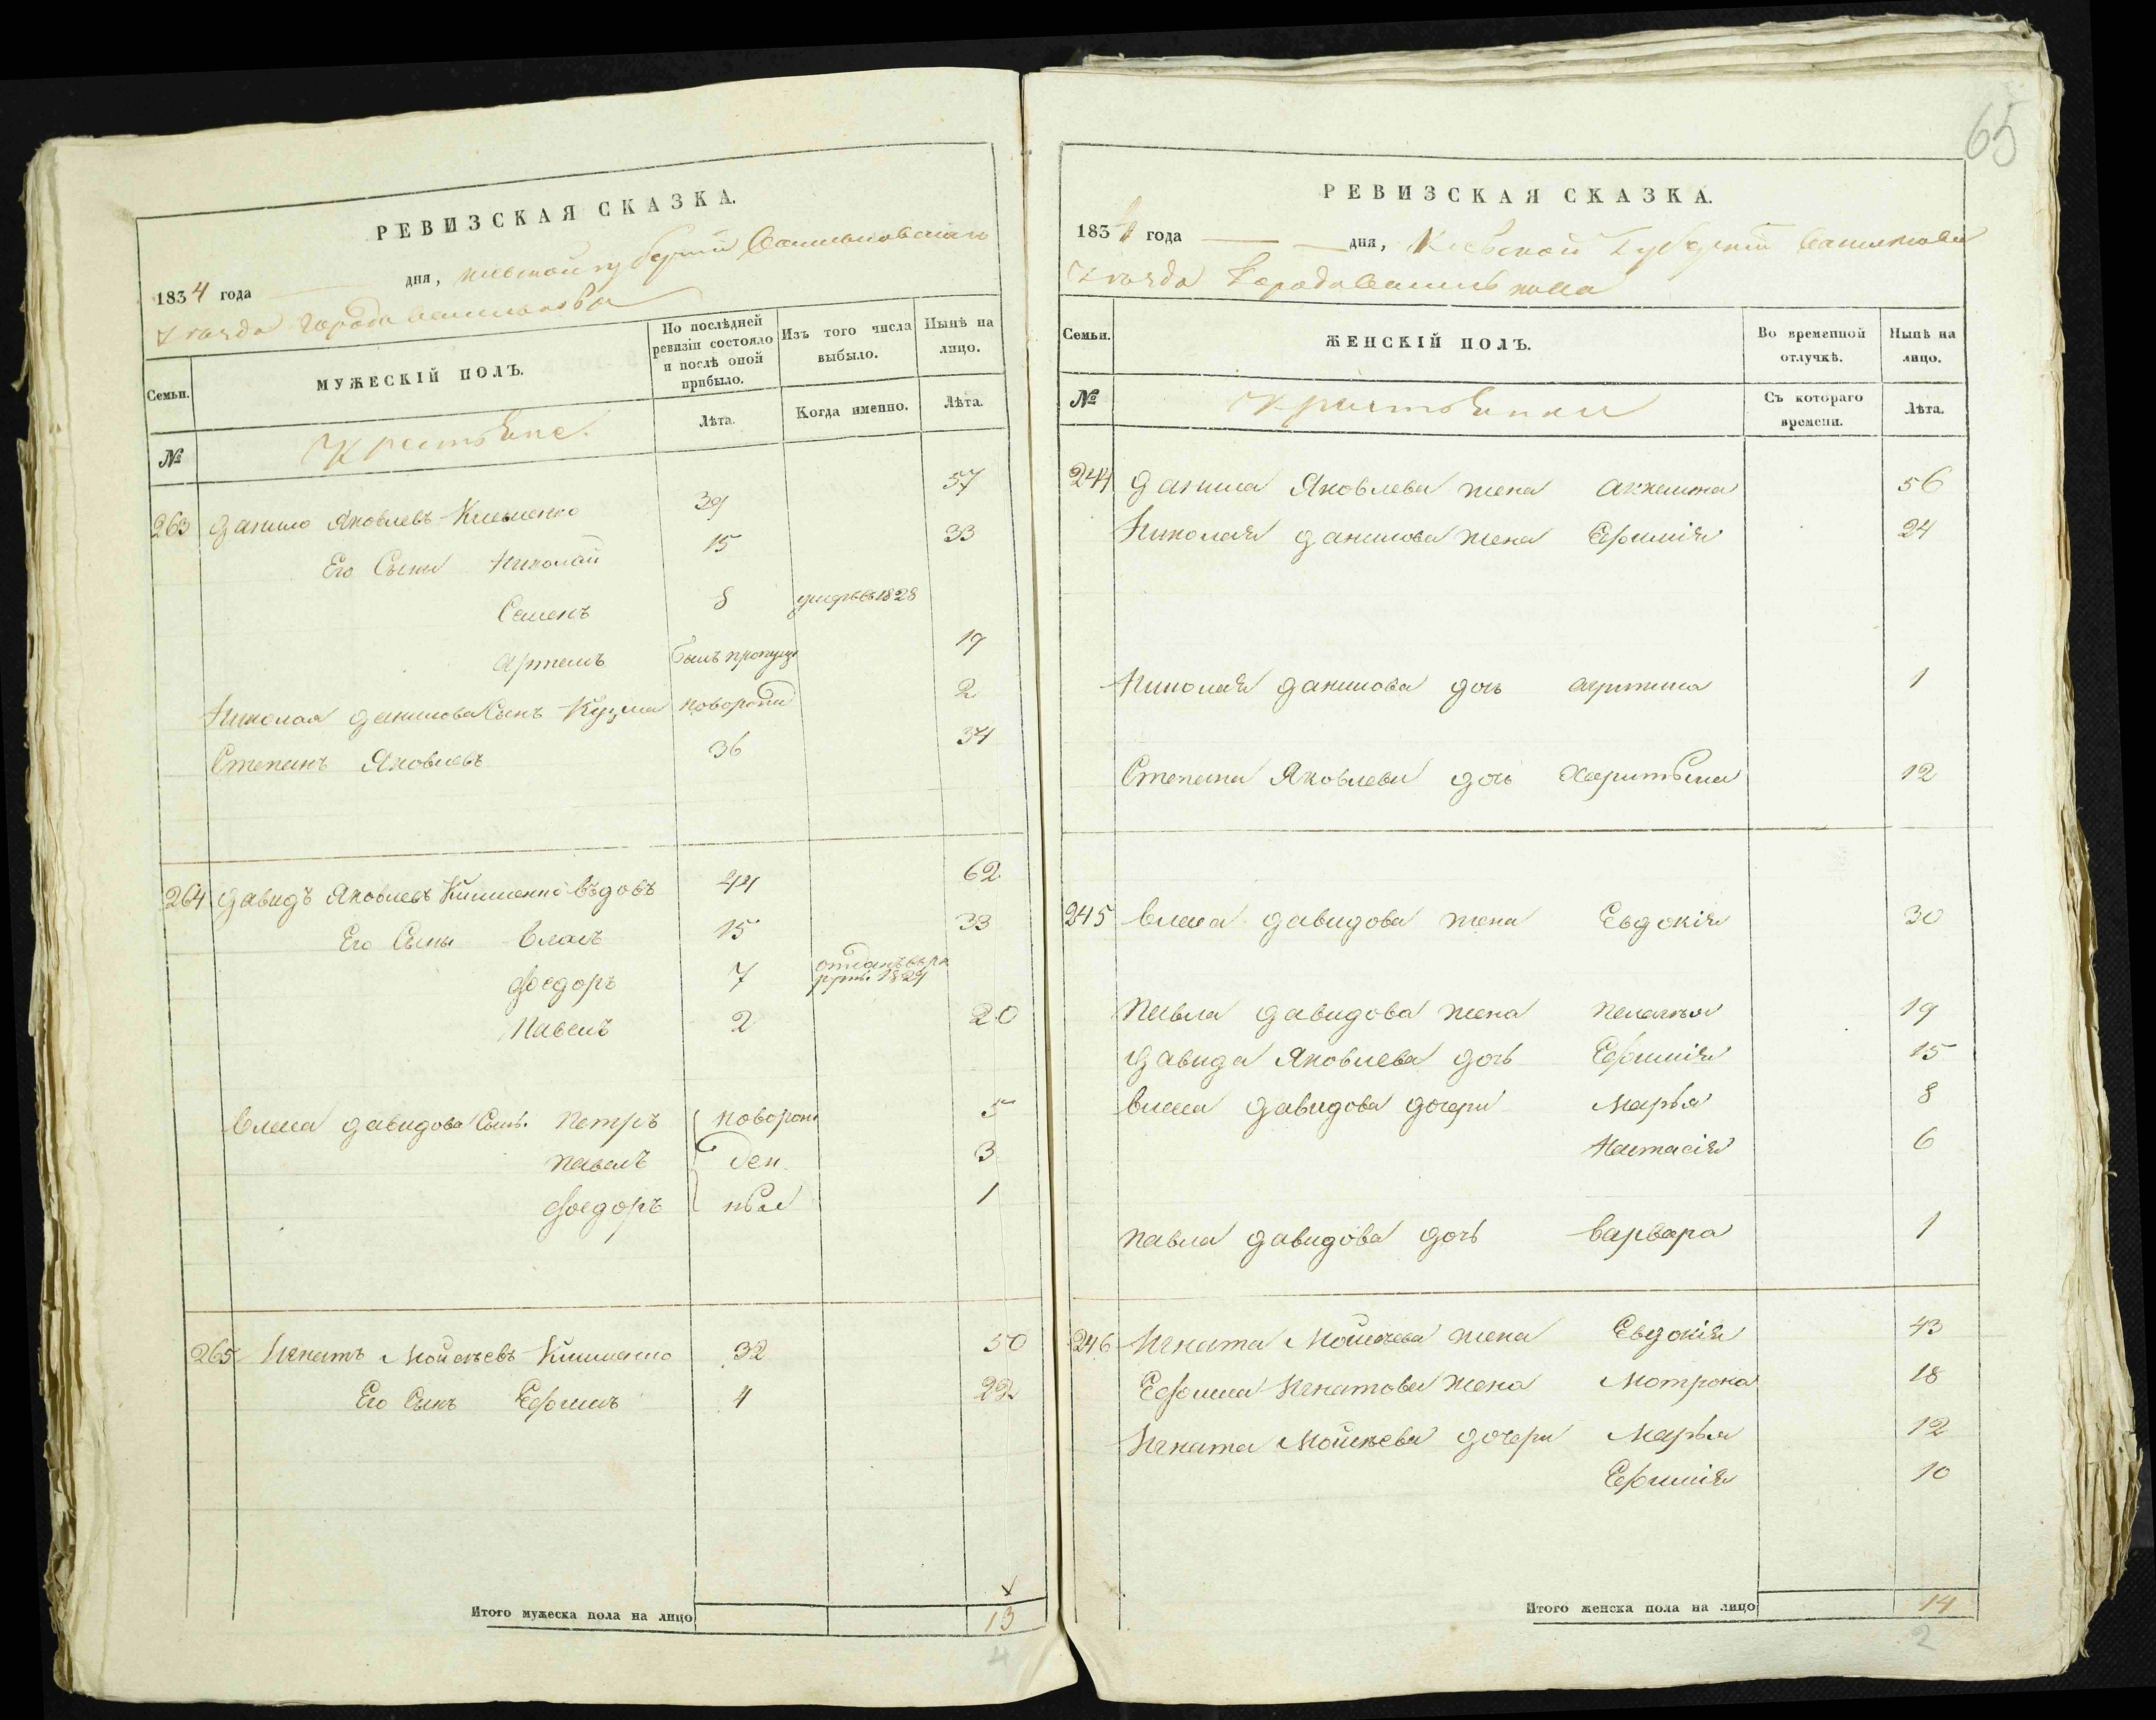 РЕВИЗСКАЯ СКАЗКА.
1834 года дня, Киевской губернии Васильковскаго
уезда города Василькова
Семьи.
МУЖЕСКІЙ ПОЛЪ.
По послѣдней ревизіи состояло и послѣ оной прибыло.
Изъ того числа выбыло.
Нынѣ на лицо.
№
Крестьяне.
Лѣта.
Когда именно.
Лѣта.
263 Данило Яковлевъ Клименко 39 57
Его Сыны Николай 15 33
Семенъ 8 умеръ въ 1828
Артемъ былъ пропущ 19
Николая Данилова Сынъ Кузма новорожд 2
Степанъ Яковлевъ 36 54
264 Давидъ Яковлевъ Клименко вдовъ 44 62
Его Сыны Власъ 15 33
Федоръ 7 отданъ въ ре
круты 1824
Павелъ 2 20
Власа Давидова Сын. Петръ новорож 5
Павелъ ден 3
Федоръ ные 1
265 Игнатъ Мойсѣевъ Клименко 32 50
Его Сынъ Ефимъ 4 22
Итого мужеска пола на лицо 13
4
65
РЕВИЗСКАЯ СКАЗКА.
1834 года дня, Киевской Губерніи Василькова
уезда Города Василькова
Семьи.
ЖЕНСКІЙ ПОЛЪ.
Во временной отлучкѣ.
Нынѣ на лицо.
№
Крестьянки
Съ котораго времени.
Лѣта.
244 Данила Яковлева жена 56
Николая Данилова жена Ефимія 24
Николая Данилова дочь 1
Степана Яковлева дочь Харитына 12
245 Власа Давидова жена Евдокія 30
Павла Давидова жена Пелагия 19
Давида Яковлева дочь Ефимія 15
Власа Давидова дочери Марья 8
Настасія 6
Павла Давидова дочь Варвара 1
246 Игната Мойсѣева жена Евдокія 43
Ефима Игнатова жена Мотрона 18
Игната Мойсѣева дочери Марья 12
Ефимія 10
Итого женска пола на лицо 14
2